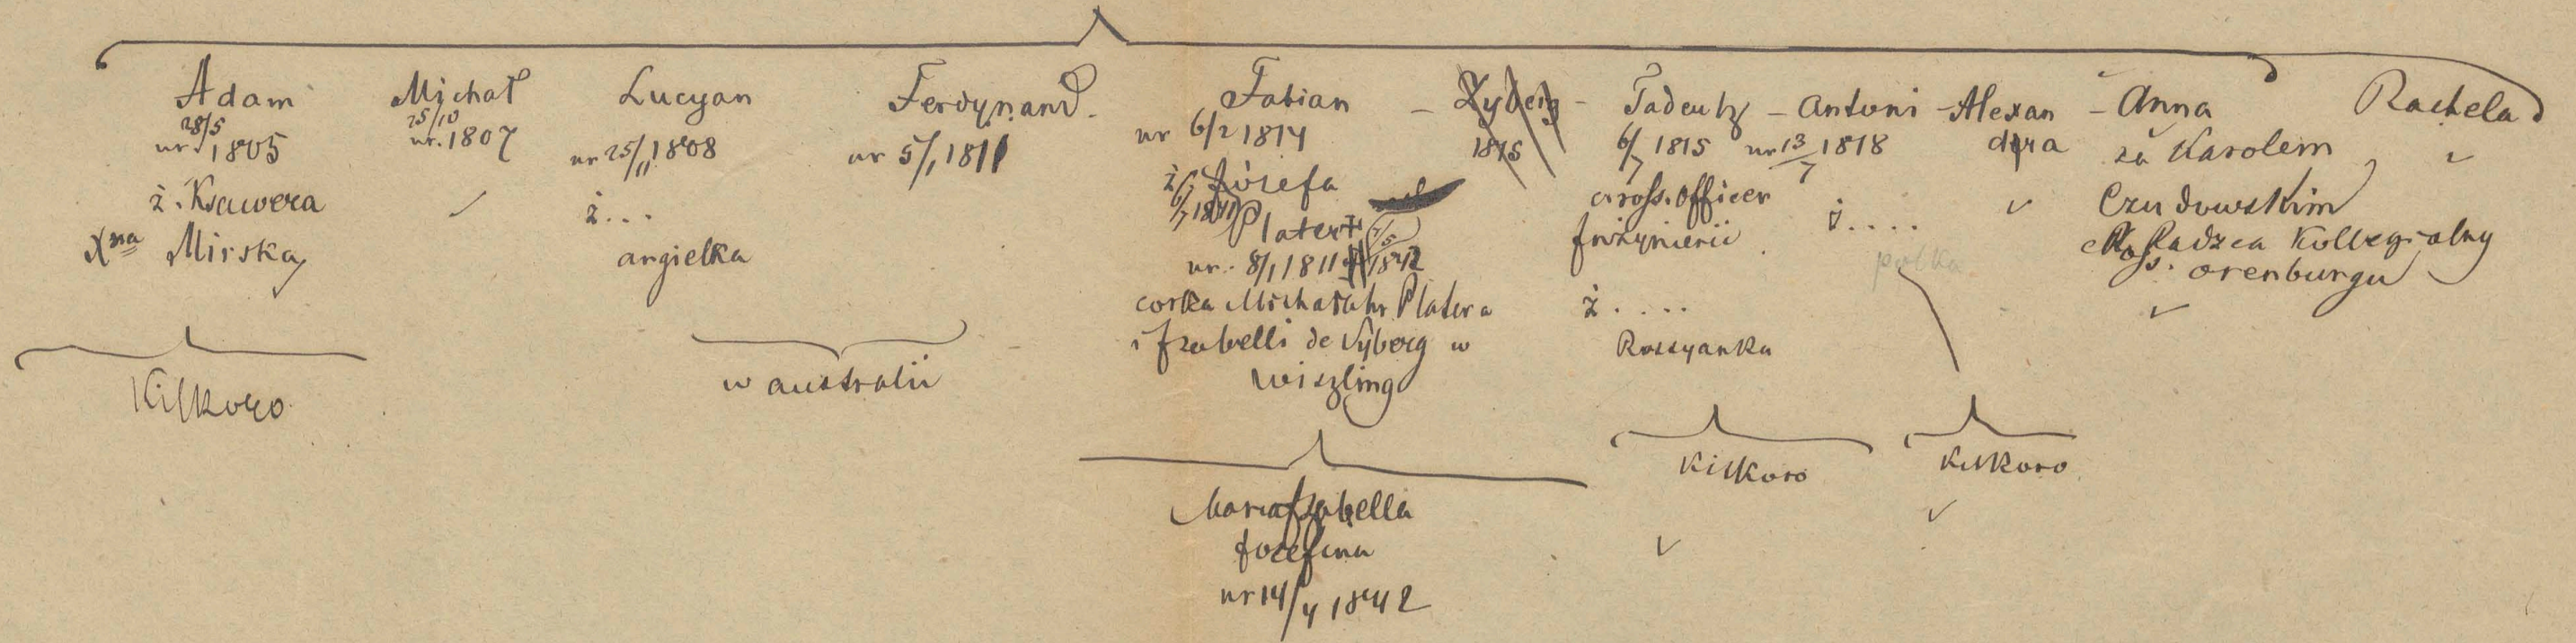 Adam
28/5
ur. 1805
ż. Ksawera
Xna Mirska
Kilkoro
Michał
25/10
ur. 1807
Lucyan
ur 25/11 1808
ż...
angielka
Ferdynand
ur 5/1 1811
w australii
Fabian
ur 6/2 1814
ż. Józefa
6/7 1841 Plater
ur. 8/1 1811 1842
corka Michała hr Platera
i Izabelli de Syberg w
Wiszling
Maria Izabella
Jozefina
ur 14/4 1842
Zyberg
1815
Tadeusz
6/7 1815
w ross. officer
Inżynierii
ż....
Rossyanka
Kilkoro
Antoni
ur 13/7 1818
ż....
polka
Kilkoro
Alexan
dra
Anna
za Karolem
Czudowskim
Ross. Radzca Kollegialny
orenburgu
Rachela